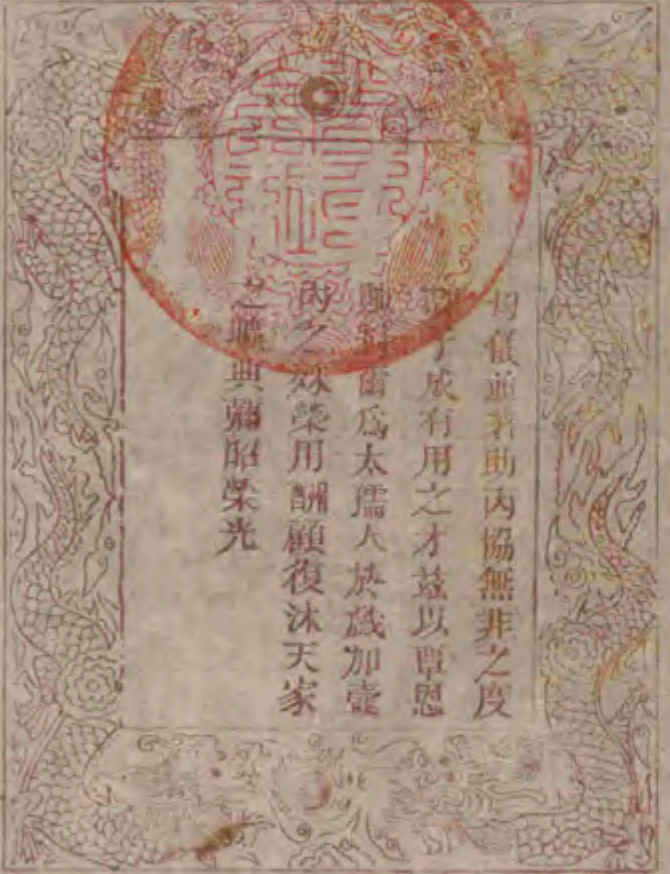 儀並著助內協無非之度
子成有用之才茲以覃恩
爾爲太孺人於戲加壼
內之殊榮用酬顧復沐天家
之曠典彌昭榮光